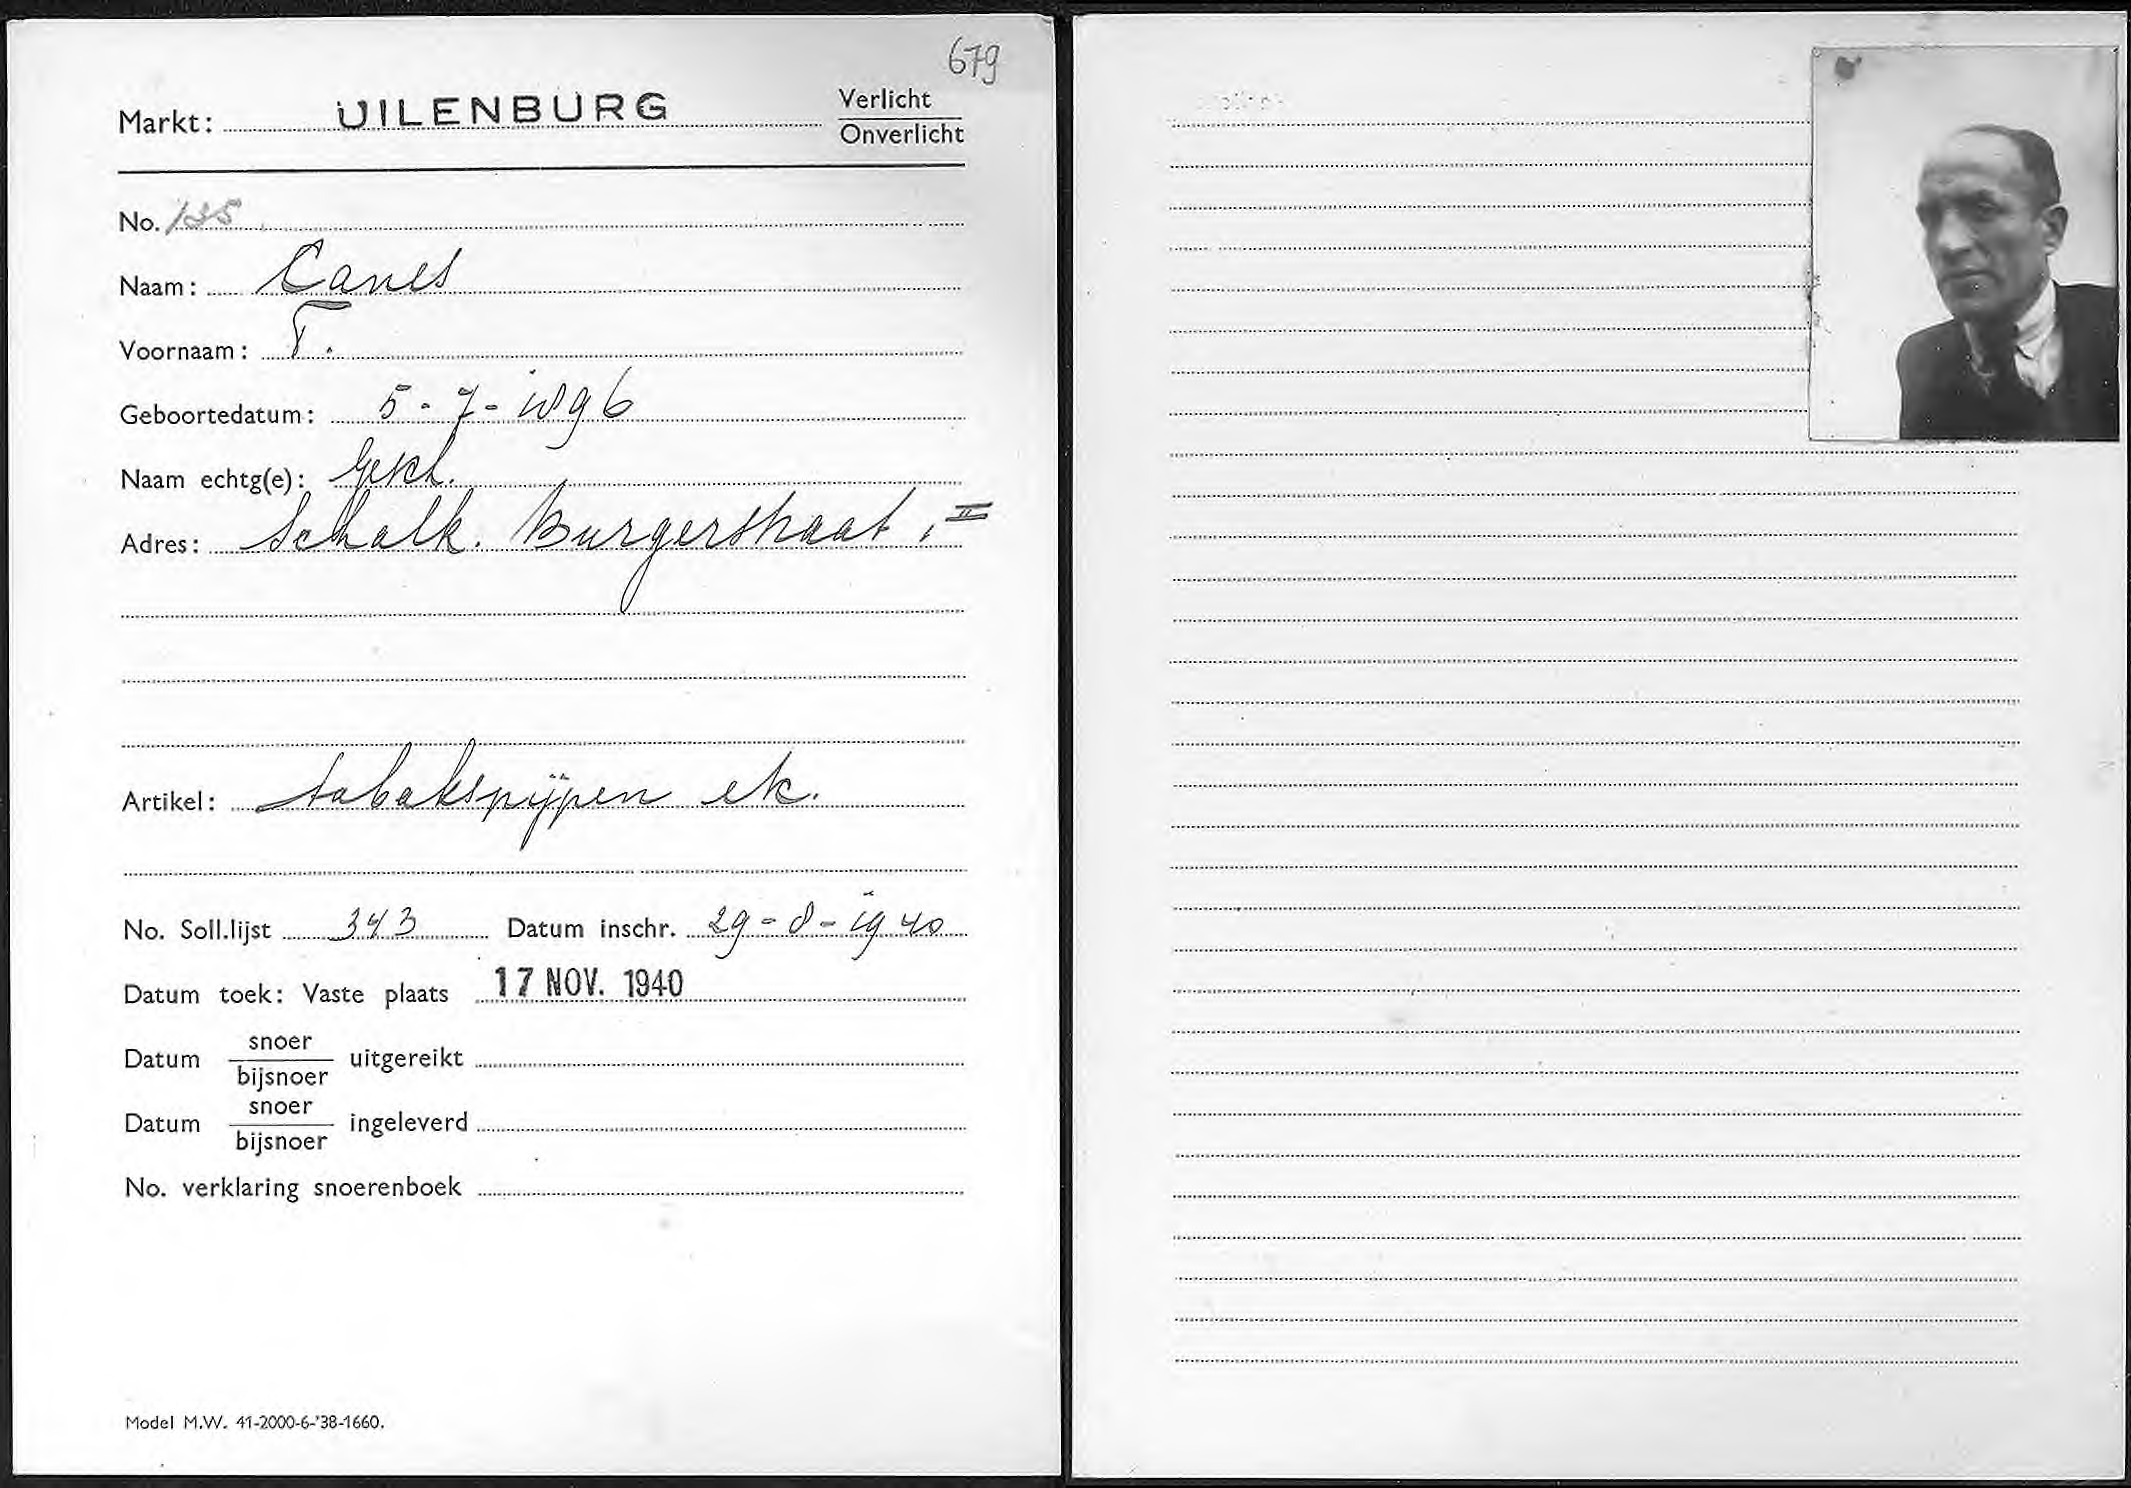 679
Markt: UILENBURG
Verlicht
Onverlicht
No. 135
Naam: Canes
Voornaam: T.
Geboortedatum: 5-7-1896
Naam echtg(e): Gesch.
Adres: Schalk. Burgerstraat 1 II
Artikel: tabakspijpen etc.
No. Soll.lijst 343 Datum inschr. 29-8-1940
Datum toek: Vaste plaats 17 NOV. 1940
Datum snoer/bijsnoer uitgereikt
Datum snoer/bijsnoer ingeleverd
No. verklaring snoerenboek
Model M.W. 41-2000-6-'38-1660.